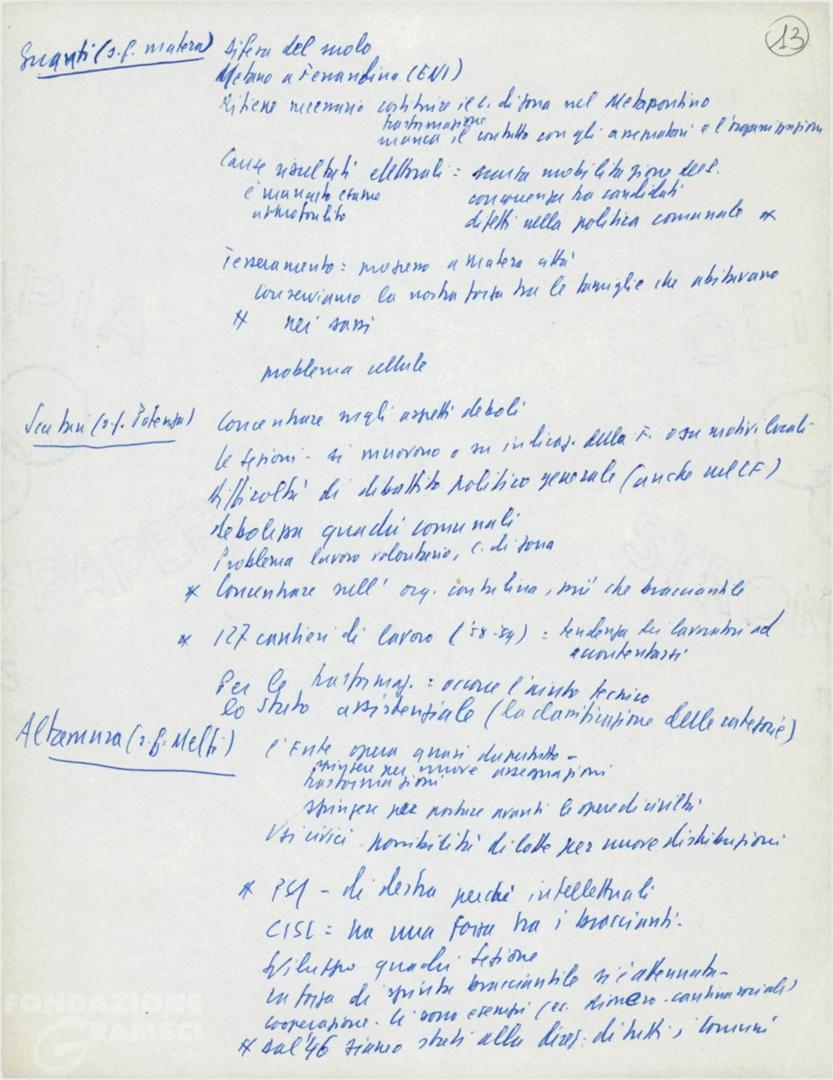 13
Guanti (s.f. matera) Difesa del suolo
Metano a Ferrandina (ENI)
Ritiene necessario costituire il C. di zona nel Metapontino
trasformazione
manca il contatto con gli assegnatari e l'organizzazione
Cause risultati elettorali: scarsa mobilitazione
è mancato esame concorrenza tra candidati
approfondito difetti nella politica comunale *
Tesseramento: progresso a Matera città
conserviamo la nostra forza tra le famiglie che abitavano
* nei sassi
problema cellule
(s.f. Potenza) Concentrare sugli aspetti deboli
le sezioni - si muovono o su indicaz. della F. o su motivi locali
difficoltà di dibattito politico generale (anche nel CF)
debolezza quadri comunali
Problema lavoro volontario, C. di zona
* Concentrare nell' org. contadina, più che bracciantile
* 127 cantieri di lavoro ('58-59) = tendenza dei lavoratori ad
accontentarsi
Per le trasformaz.: occorre l'aiuto tecnico
lo stato assistenziale (la classificazione delle categorie)
Altamura (s.f. Melfi) l'Ente opera quasi dappertutto -
spingere per nuove assegnazioni
trasformazioni
spingere per portare avanti le opere di civiltà
Usi civici possibilità di lotte per nuove distribuzioni
* PSI - di destra perché intellettuali
CISL = ha una forza tra i braccianti.
Sviluppo quadri sezione
la forza di spinta bracciantile si è attenuata -
cooperazione. Ci sono esempi (es. Rionero - cantina sociale)
* Dal '46 siamo stati alla direz. di tutti i comuni
FONDAZIONE
GRAMSCI